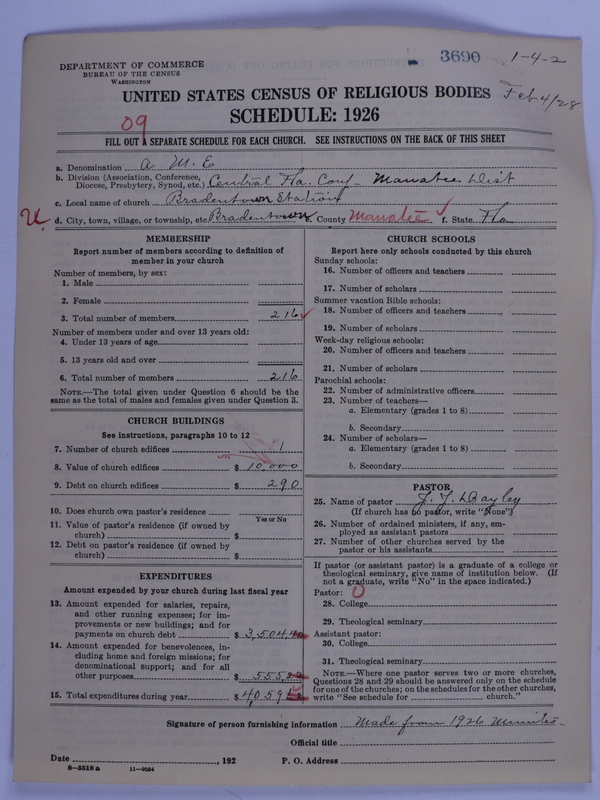 3690 1-4-2
DEPARTMENT OF COMMERCE
BUREAU OF THE CENSUS
WASHINGTON
Feb 4/28
UNITED STATES CENSUS OF RELIGIOUS BODIES
SCHEDULE: 1926
09
FILL OUT A SEPARATE SCHEDULE FOR EACH CHURCH. SEE INSTRUCTIONS ON THE BACK OF THIS SHEET
a. Denomination A. M. E
b. Division (Association, Conference, Diocese, Presbytery, Synod, etc.) Central Fla. Conf- Manatee Dist
c. Local name of church Bradentown Station
U. d. City, town, village, or township, etc. Bradentown e. County Manatee ✓ f. State Fla
MEMBERSHIP
Report number of members according to definition of
member in your church
Number of members, by sex:
1. Male
2. Female
3. Total number of members 216 ✓
Number of members under and over 13 years old:
4. Under 13 years of age
5. 13 years old and over
6. Total number of members 216
NOTE.—The total given under Question 6 should be the
same as the total of males and females given under Question 3.
CHURCH BUILDINGS
See instructions, paragraphs 10 to 12
7. Number of church edifices 1
8. Value of church edifices $ 10,000
9. Debt on church edifices $ 290
10. Does church own pastor's residence
Yes or No
11. Value of pastor's residence (if owned by
church) $
12. Debt on pastor's residence (if owned by
church) $
EXPENDITURES
Amount expended by your church during last fiscal year
13. Amount expended for salaries, repairs,
and other running expenses; for im-
provements or new buildings; and for
payments on church debt $ 3,504
14. Amount expended for benevolences, in-
cluding home and foreign missions; for
denominational support; and for all
other purposes $ 555
15. Total expenditures during year $ 4,059
CHURCH SCHOOLS
Report here only schools conducted by this church
Sunday schools:
16. Number of officers and teachers
17. Number of scholars
Summer vacation Bible schools:
18. Number of officers and teachers
19. Number of scholars
Week-day religious schools:
20. Number of officers and teachers
21. Number of scholars
Parochial schools:
22. Number of administrative officers
23. Number of teachers—
a. Elementary (grades 1 to 8)
b. Secondary
24. Number of scholars—
a. Elementary (grades 1 to 8)
b. Secondary
PASTOR
25. Name of pastor J. J.
(If church has no pastor, write "None")
26. Number of ordained ministers, if any, em-
ployed as assistant pastors
27. Number of other churches served by the
pastor or his assistants
If pastor (or assistant pastor) is a graduate of a college or
theological seminary, give name of institution below. (If
not a graduate, write "No" in the space indicated.)
Pastor: 0
28. College
29. Theological seminary
Assistant pastor:
30. College
31. Theological seminary
NOTE.—Where one pastor serves two or more churches,
Questions 28 and 29 should be answered only on the schedule
for one of the churches; on the schedules for the other churches,
write "See schedule for church."
Signature of person furnishing information Made from 1926 Minutes
Official title
Date , 192 P. O. Address
8—5518 a 11—9034